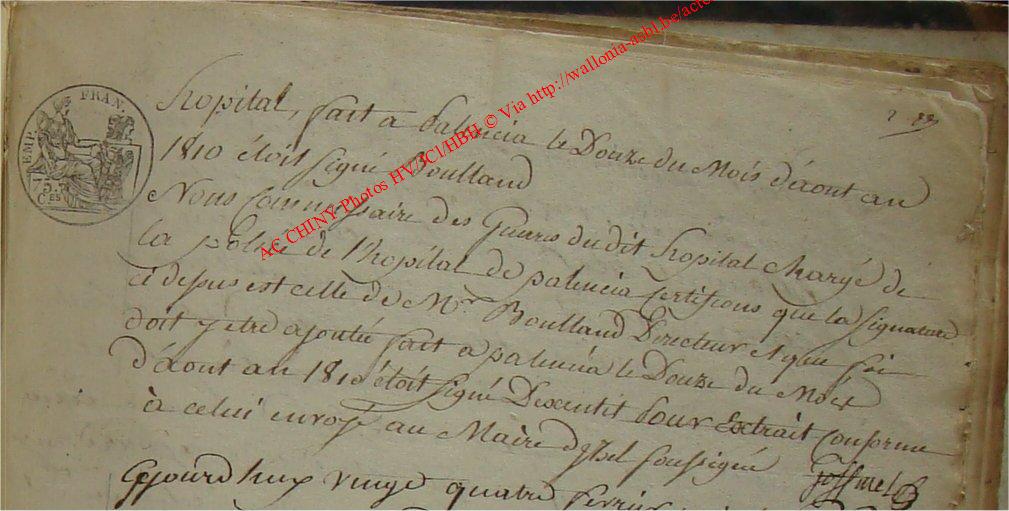 EMP. FRAN.
75
CES
AC CHINY Photos HV/JCl/HBH © Via http://wallonia-asbl.be/acte
hopital, fait à palencia le Douze du Mois d'aout an
1810 étoit signé Boulland
Nous Commissaire des Guerres du dit hopital chargé de
la police de l'hopital de palencia Certifions que la signature
ci dessus est celle de Mr Boulland Directeur et que foi
doit y etre ajoutée fait a palencia le Douze du Mois
d'aout an 1810 étoit signé pour Extrait Conforme
à celui envoyé au Maire soussigné
Cejourd'huy vingt quatre